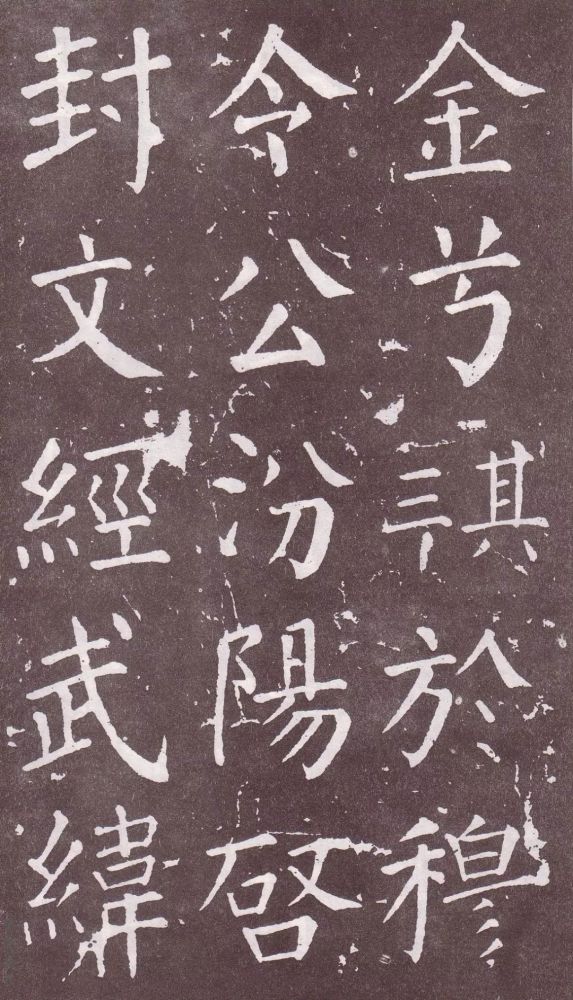 金兮祺於穆
令公汾陽啓
封文經武緯